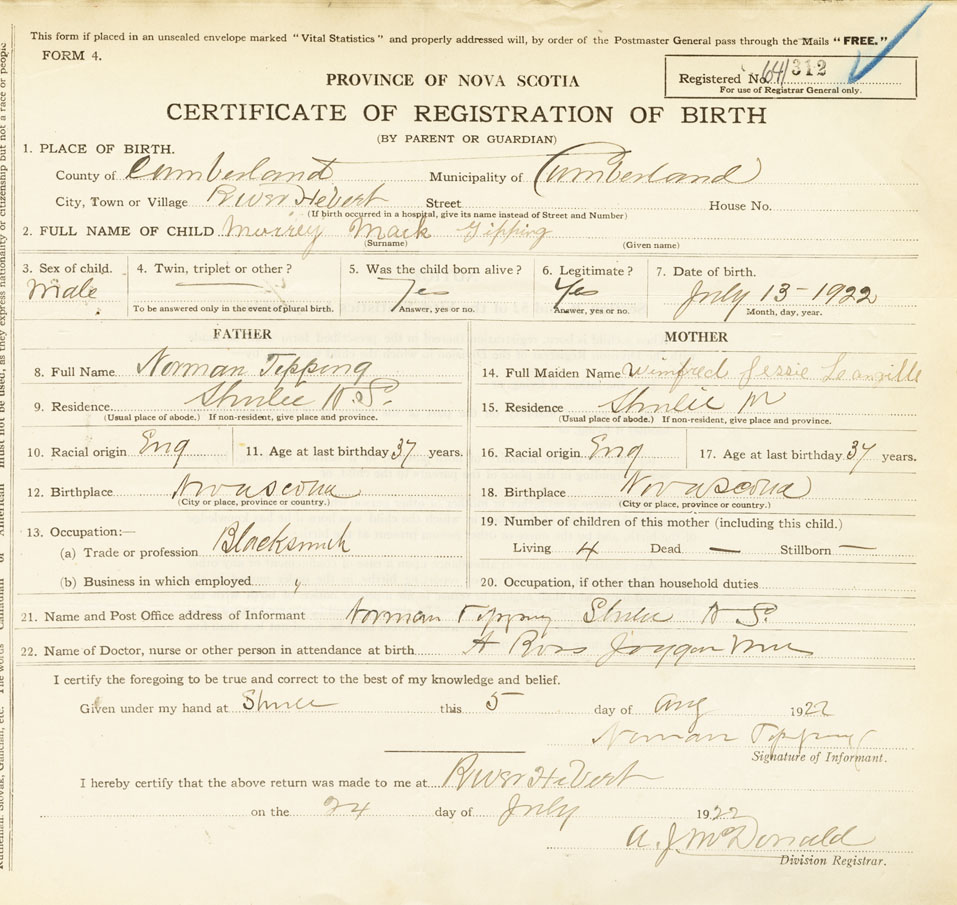 This form if placed in an unsealed envelope marked "Vital Statistics" and properly addressed will, by order of the Postmaster General pass through the Mails "FREE."
FORM 4.
PROVINCE OF NOVA SCOTIA
Registered No. 312
For use of Registrar General only.
CERTIFICATE OF REGISTRATION OF BIRTH
(BY PARENT OR GUARDIAN)
1. PLACE OF BIRTH.
County of Cumberland Municipality of Cumberland
City, Town or Village River Hebert Street House No.
(If birth occurred in a hospital, give its name instead of Street and Number)
2. FULL NAME OF CHILD Mack Tipping
(Surname) (Given name)
3. Sex of child. 4. Twin, triplet or other? 5. Was the child born alive? 6. Legitimate? 7. Date of birth.
Male Yes Yes July 13-1922
To be answered only in the event of plural birth. Answer, yes or no. Answer, yes or no. Month, day, year.
FATHER MOTHER
8. Full Name Norman Tipping 14. Full Maiden Name Winifred Jessie
9. Residence Shulie N.S. 15. Residence Shulie
(Usual place of abode.) If non-resident, give place and province. (Usual place of abode.) If non-resident, give place and province.
10. Racial origin Eng 11. Age at last birthday 37 years. 16. Racial origin Eng 17. Age at last birthday 37 years.
12. Birthplace Nova Scotia 18. Birthplace Nova Scotia
(City or place, province or country.) (City or place, province or country.)
13. Occupation:— 19. Number of children of this mother (including this child.)
(a) Trade or profession Blacksmith Living 4 Dead — Stillborn —
(b) Business in which employed 20. Occupation, if other than household duties
21. Name and Post Office address of Informant Norman Tipping Shulie N.S.
22. Name of Doctor, nurse or other person in attendance at birth A Ross Joggin
I certify the foregoing to be true and correct to the best of my knowledge and belief.
Given under my hand at Shulie this 5 day of Aug 1922
Norman Tipping
Signature of Informant.
I hereby certify that the above return was made to me at River Hebert
on the 24 day of July 1922
A. J. McDonald
Division Registrar.